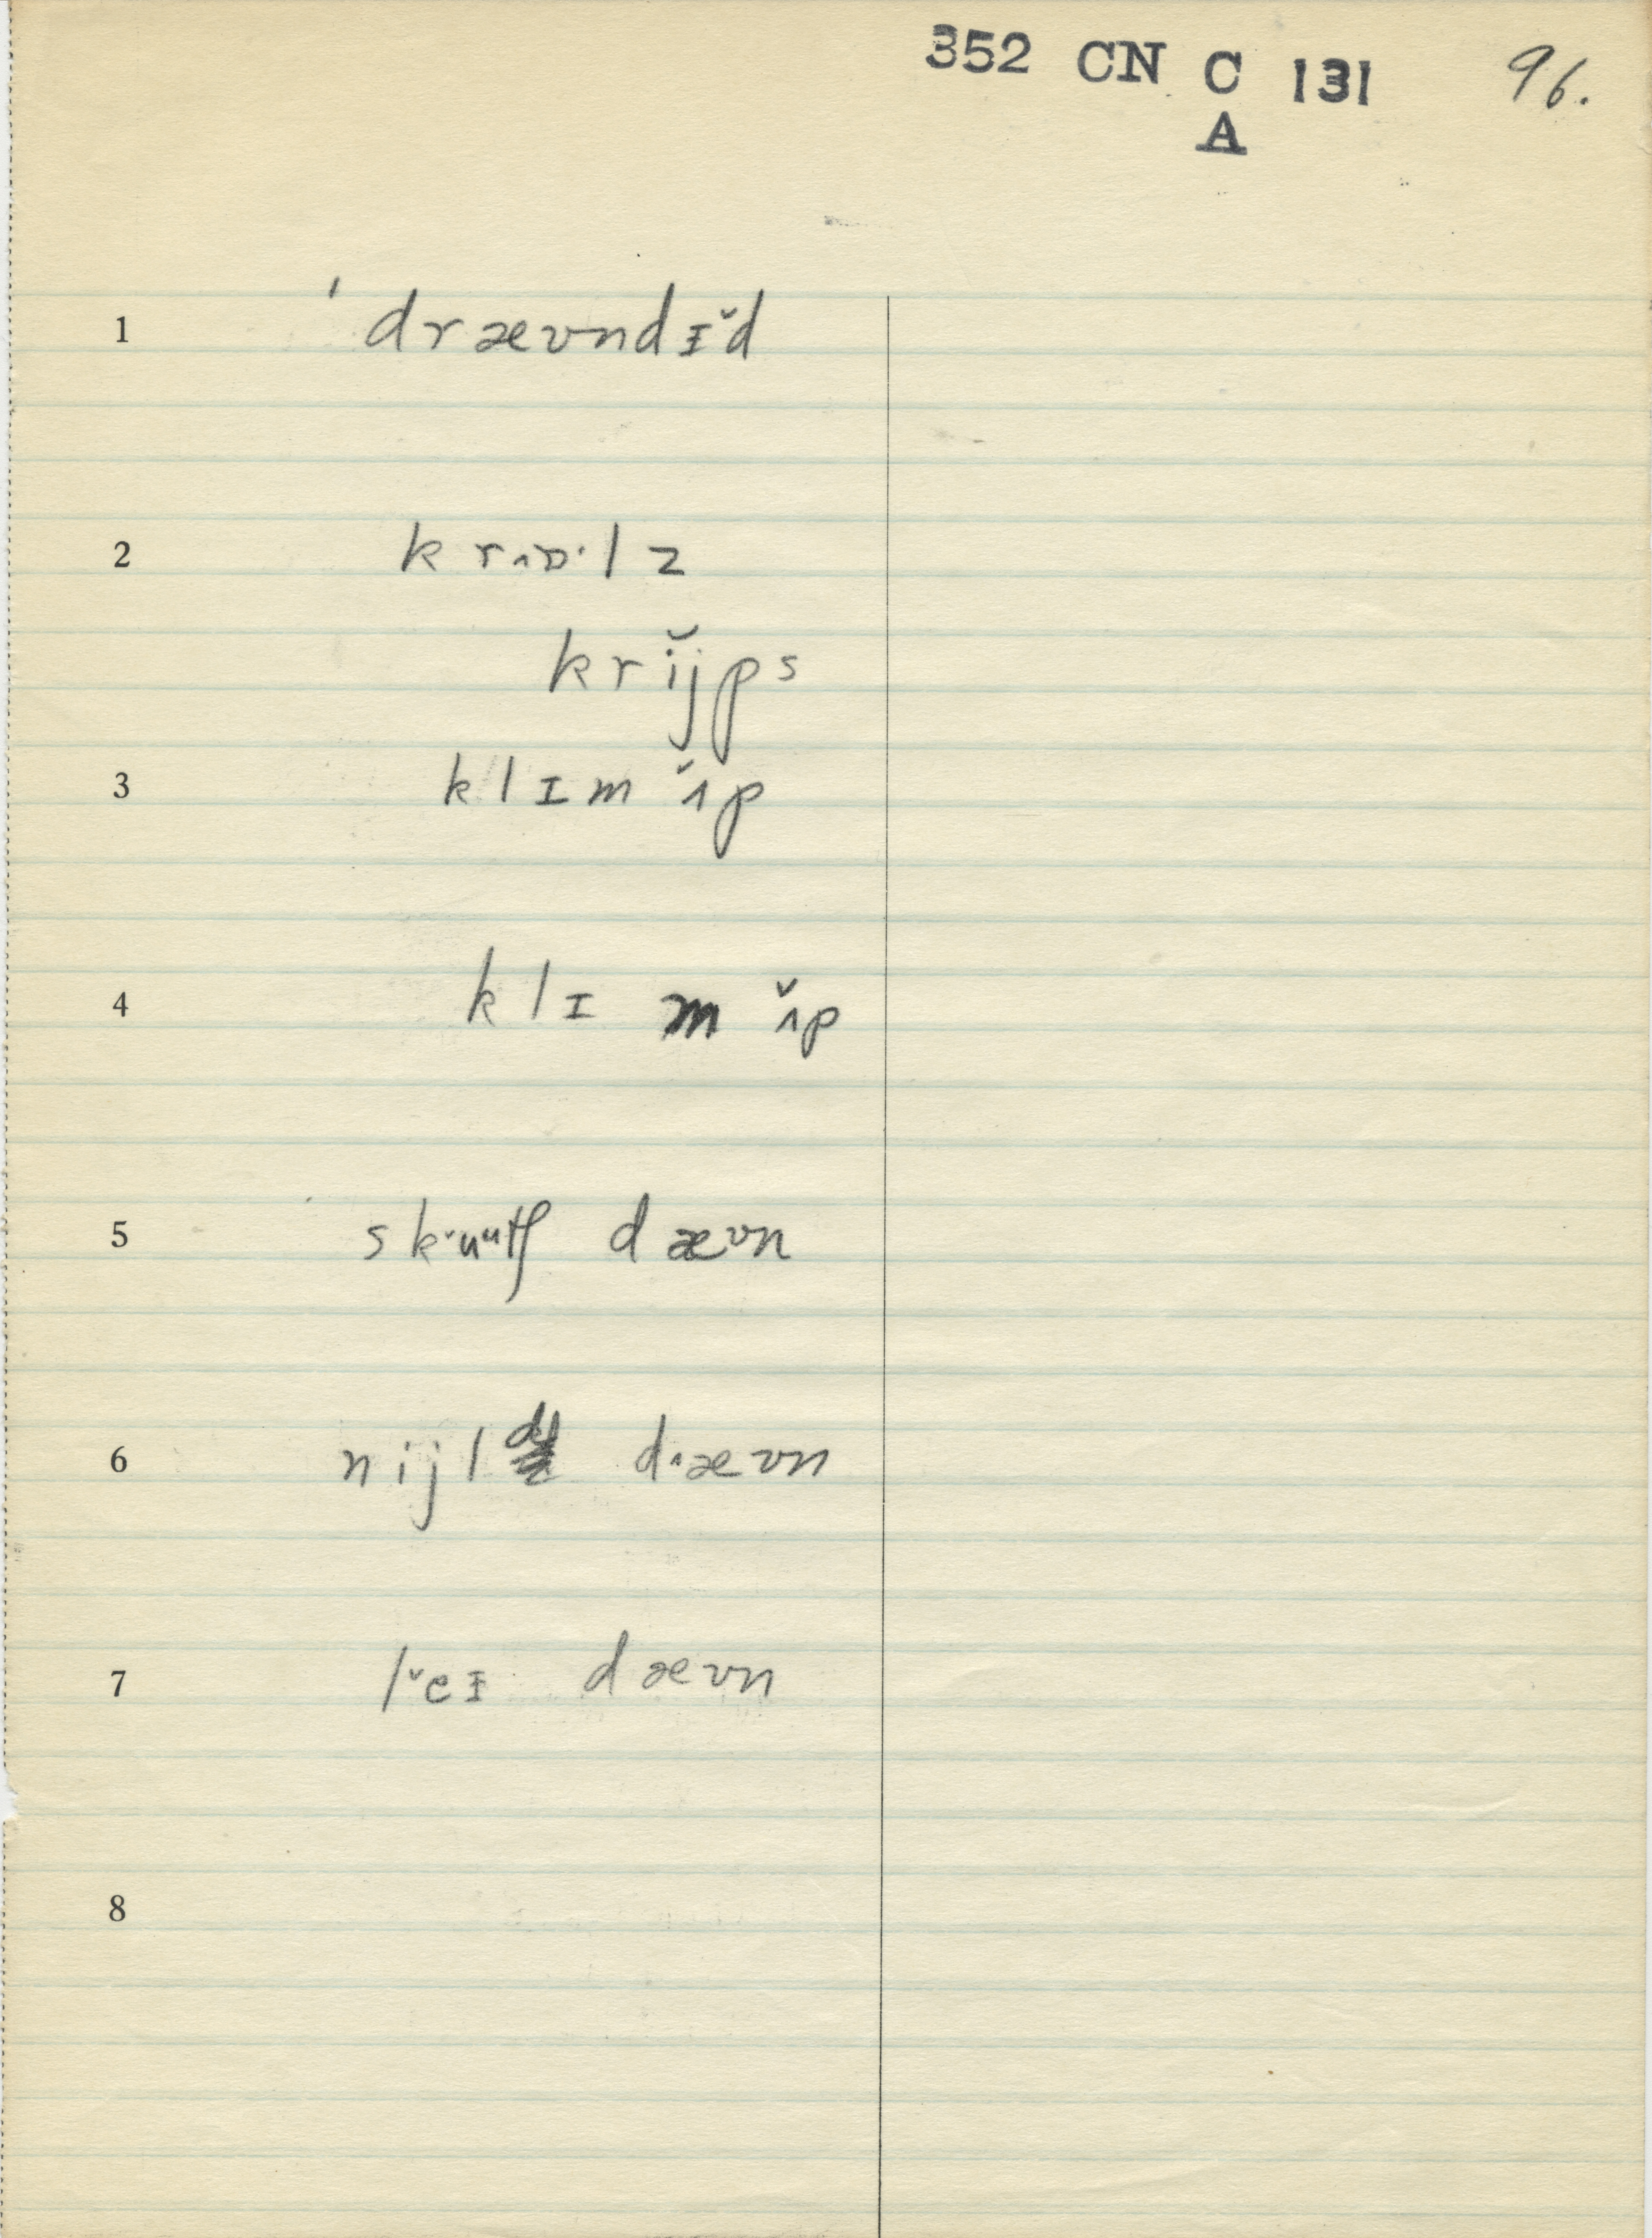 352 CN C 131 96.
A
1 'drævndɪ̆d
2 krɒ˄·lz
krĭjps
3 klɪm ʌ̆p
4 klɪ m ʌ̆p
5 sk˅uᵘtʃ dævn
6 nijld d˄ævn
7 l˅eɪ dævn
8